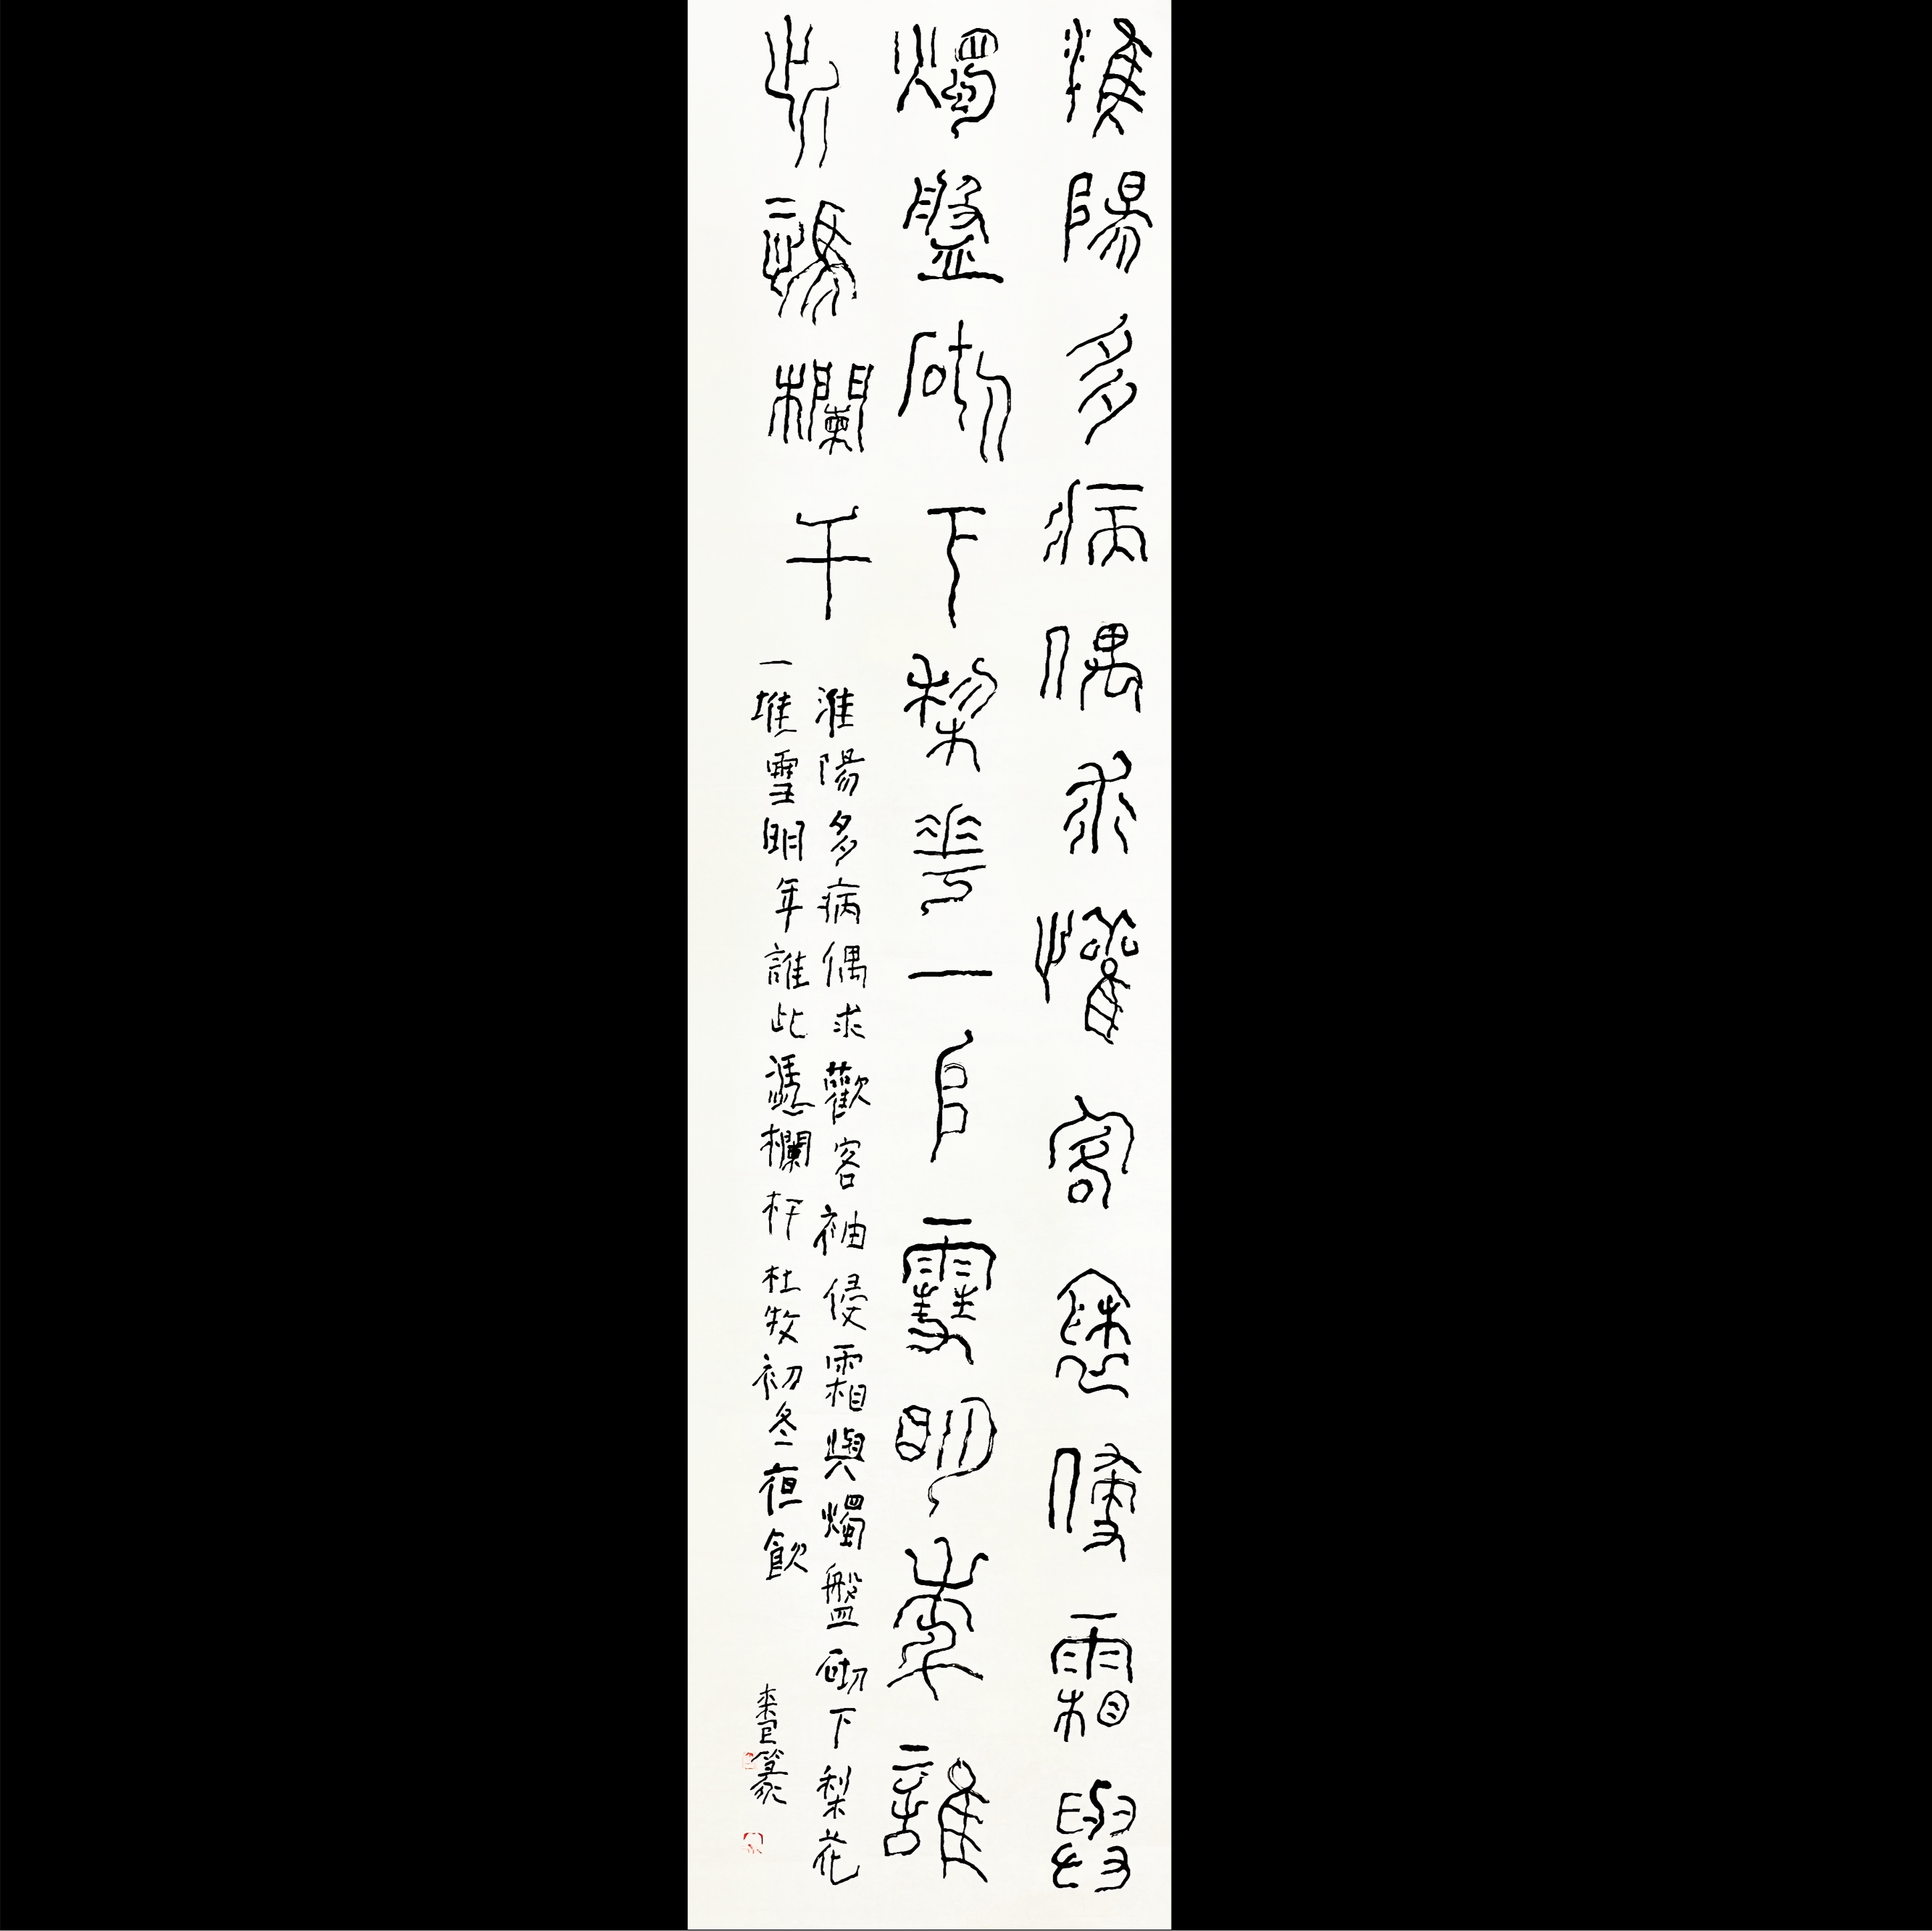 淮陽多病偶求懽客袖侵霜與
燭盤砌下梨華一𠂤雪明年誰
此憑欄干
淮陽多病偶求歡客袖侵霜與燭盤砌下梨花
一堆雪明年誰此憑欄杆杜牧初冬夜飲
篆